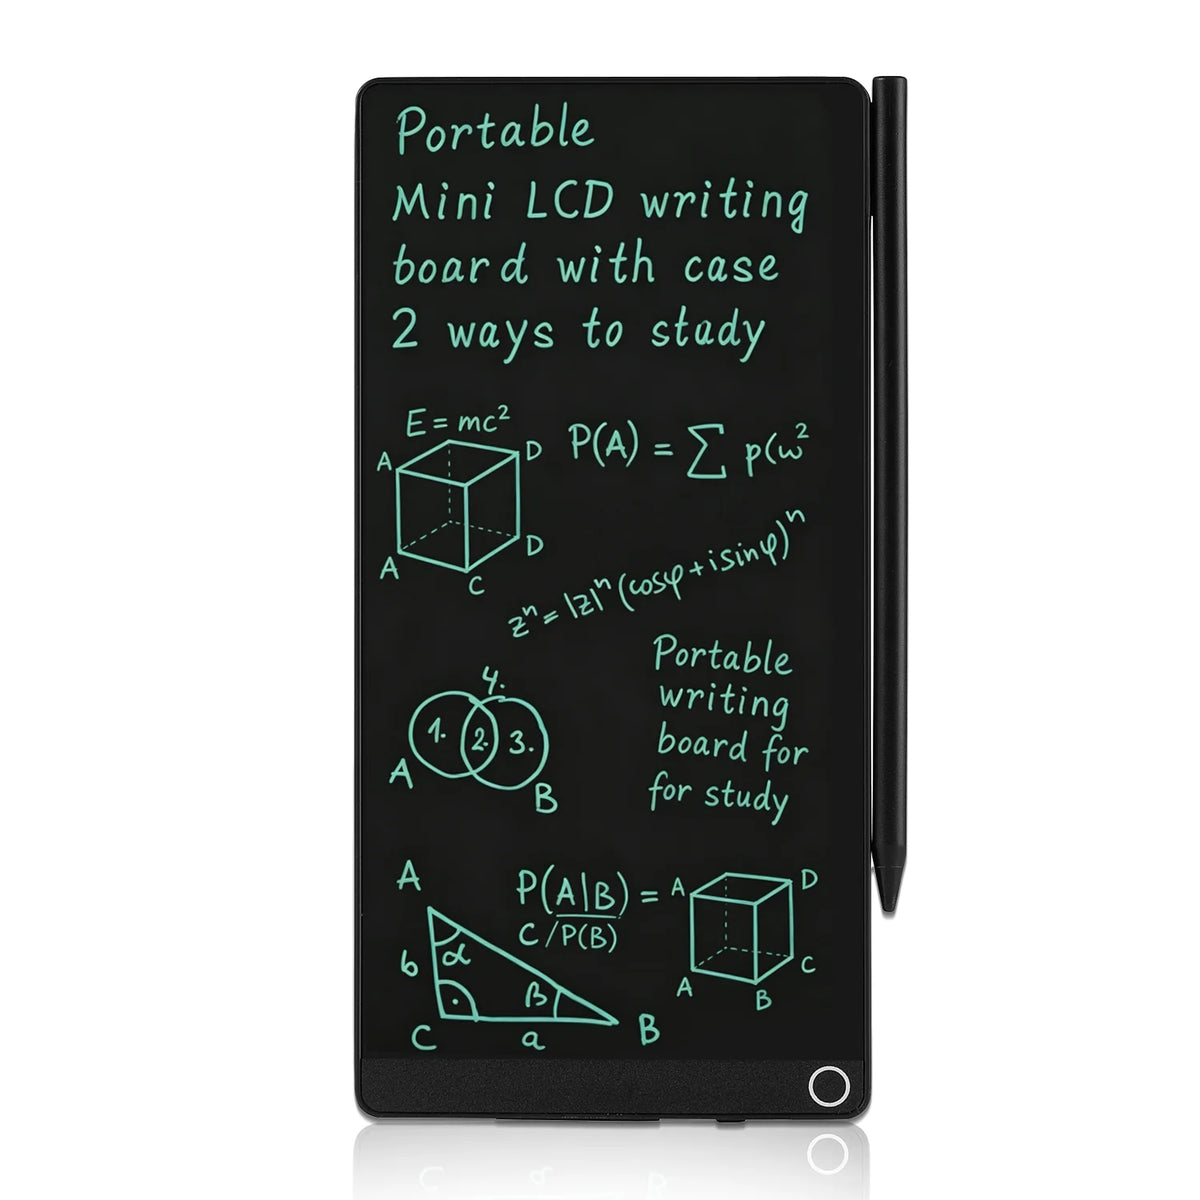 Portable
Mini LCD writing
board with case
2 ways to study
E = mc²
A
D
A
D
C
P(A) = ∑ p(ω²
zⁿ = |z|ⁿ (cosφ + i sinφ)ⁿ
Portable
writing
board for
for study
4.
1.
2.
3.
A
B
A
b
α
β
C
a
B
P(A|B) =
C /P(B)
A
D
A
B
C